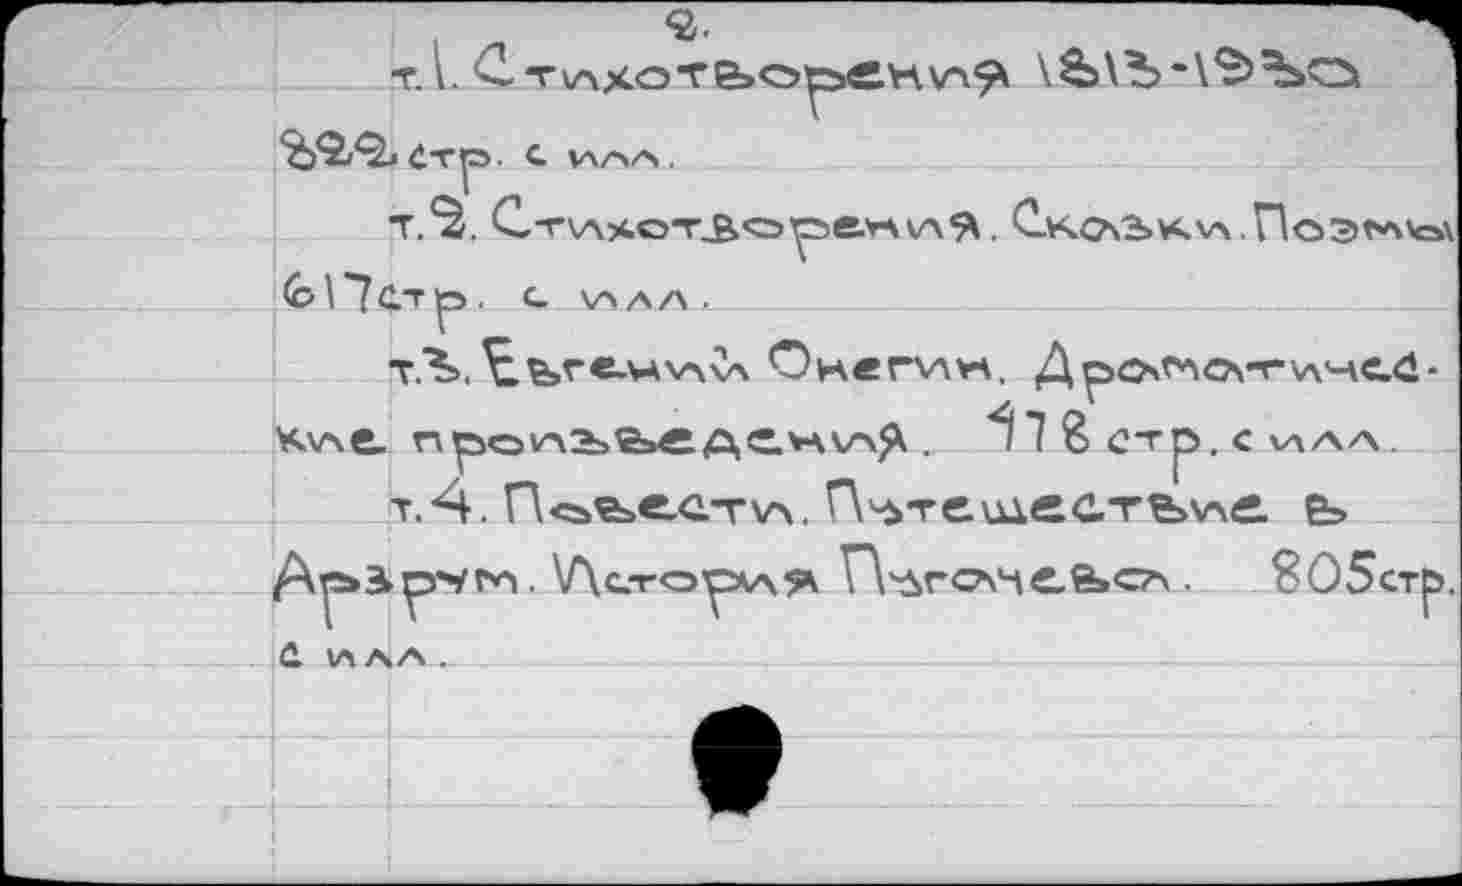 2.
т.1. Стихотворения 1813-1830
322 стр. с илл.
т.2. Стихотворения. Сказки. Поэмы
617 стр. с илл.
т.3. Евгений Онегин. Драматичес-
кие произведения. 478 стр. с илл.
т.4. Повести. Путешествие в
Арзрум. История Пугачева. 805 стр.
с илл.